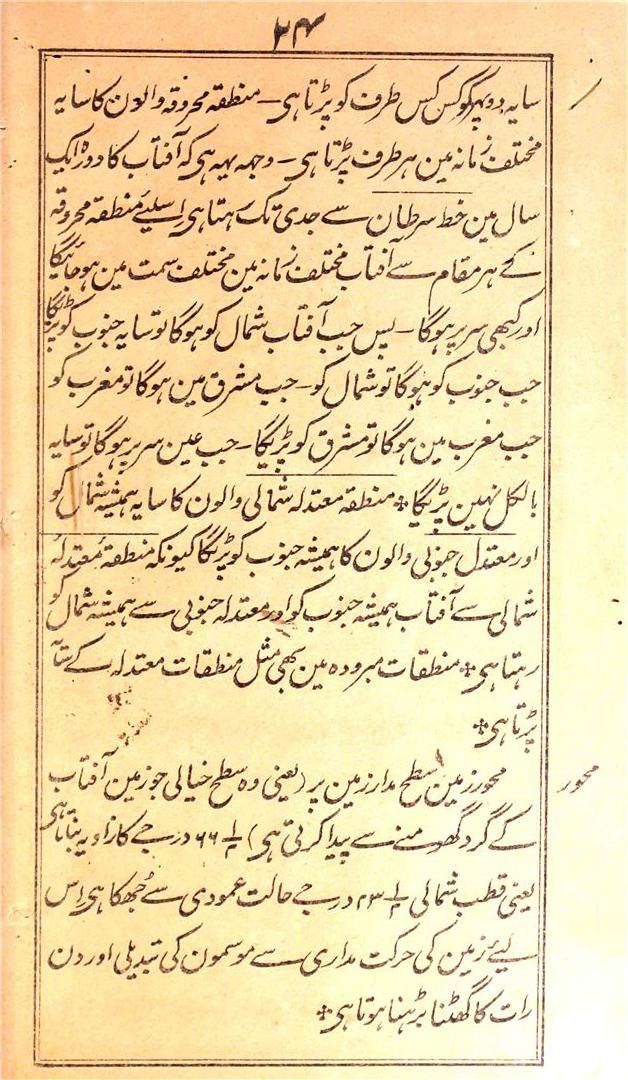 ۲۴
سایہ دوپہر کو کس کس طرف کو پڑتا ہی ـ منطقہ محروقہ والون کا سایہ
مختلف زمانہ مین ہر طرف پڑتا ہی ـ وجہہ یہہ ہی کہ آفتاب کا دورہ ایک
سال مین خط سرطان سے جدی تک رہتا ہی اسلیئے منطقہ محروقہ
کے ہر مقام سے آفتاب مختلف زمانہ مین مختلف سمت مین ہو جائیگا
اور کبھی سر پر ہوگا ـ پس جب آفتاب شمال کو ہوگا تو سایہ جنوب کو پڑیگا
جب جنوب کو ہوگا تو شمال کو ـ جب مشرق مین ہوگا تو مغرب کو
جب مغرب مین ہوگا تو مشرق کو پڑیگا ـ جب عین سر پر ہوگا تو سایہ
بالکل نہین پڑیگا ٭ منطقہ معتدلہ شمالی والون کا سایہ ہمیشہ شمال کو
اور معتدل جنوبی والون کا ہمیشہ جنوب کو پڑیگا کیونکہ منطقۂ معتدلۂ
شمالی سے آفتاب ہمیشہ جنوب کو اور معتدلہ جنوبی سے ہمیشہ شمال کو
رہتا ہی ٭ منطقات مبرودہ مین بھی مثل منطقات معتدلہ کے سایہ
پڑتا ہی ٭
محور زمین سطح مدار زمین پر (یعنی وہ سطح خیالی جو زمین آفتاب
محور
کے گرد گھومنے سے پیدا کرتی ہی) ۶۶ ۱/۲ درجے کا زاویہ بناتا ہی
یعنی قطب شمالی ۲۳ ۱/۲ درجے حالت عمودی سے جُھکا ہی اس
لیئے زمین کی حرکت مداری سے موسمون کی تبدیلی اور دن
رات کا گھٹنا بڑہنا ہوتا ہی ٭